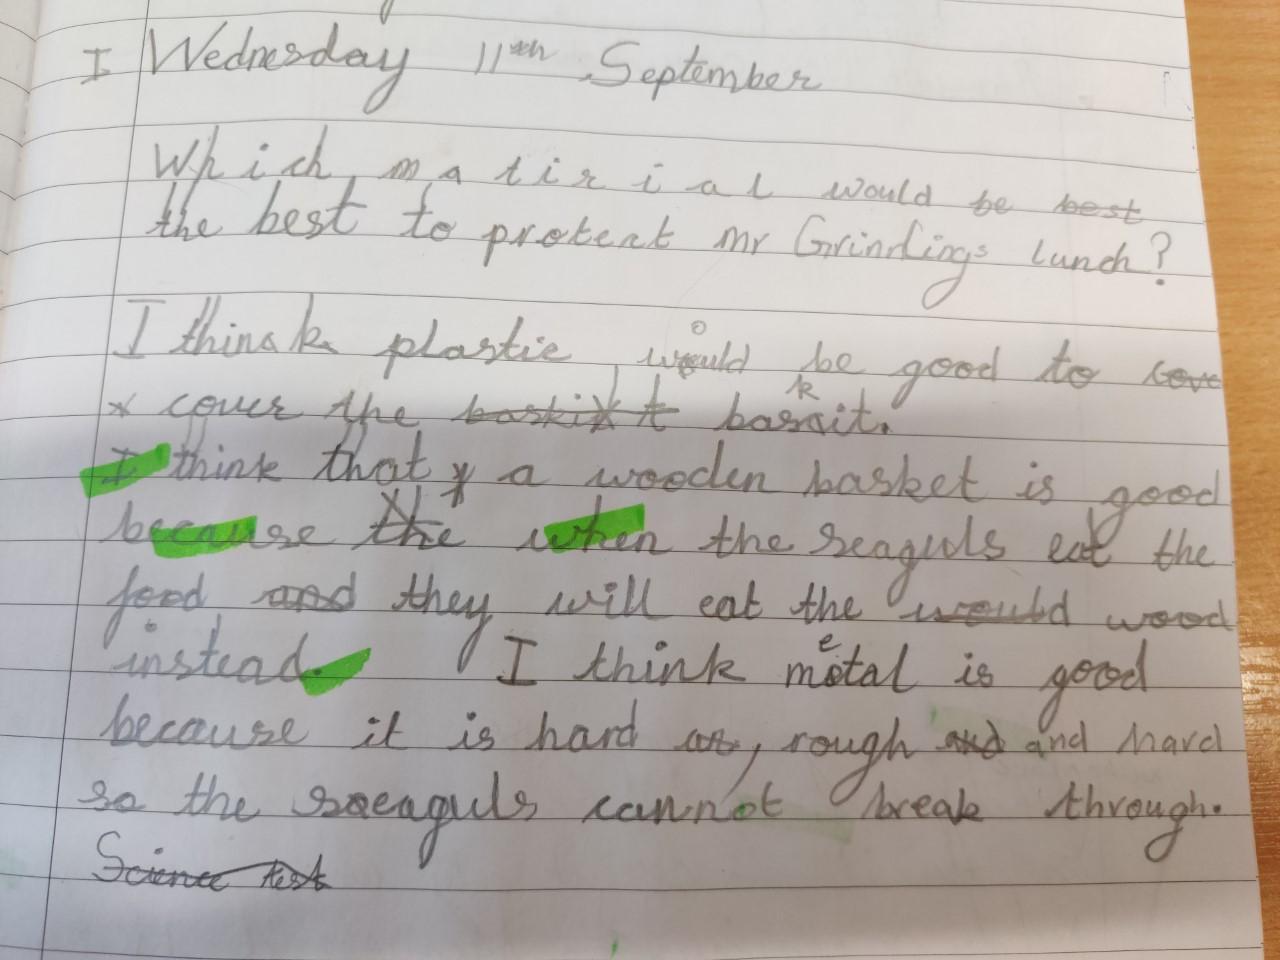 I Wednesday 11th September
Which matirial would be best
the best to protect mr Grindlings lunch?
I think plastic would be good to cove
x cover the baskit basket.
I think that a wooden basket is good
because the when the seaguls eat the
food and they will eat the would wood
instead. I think metal is good
because it is hard as, rough and and hard
so the seaguls cannot break through.
Science test